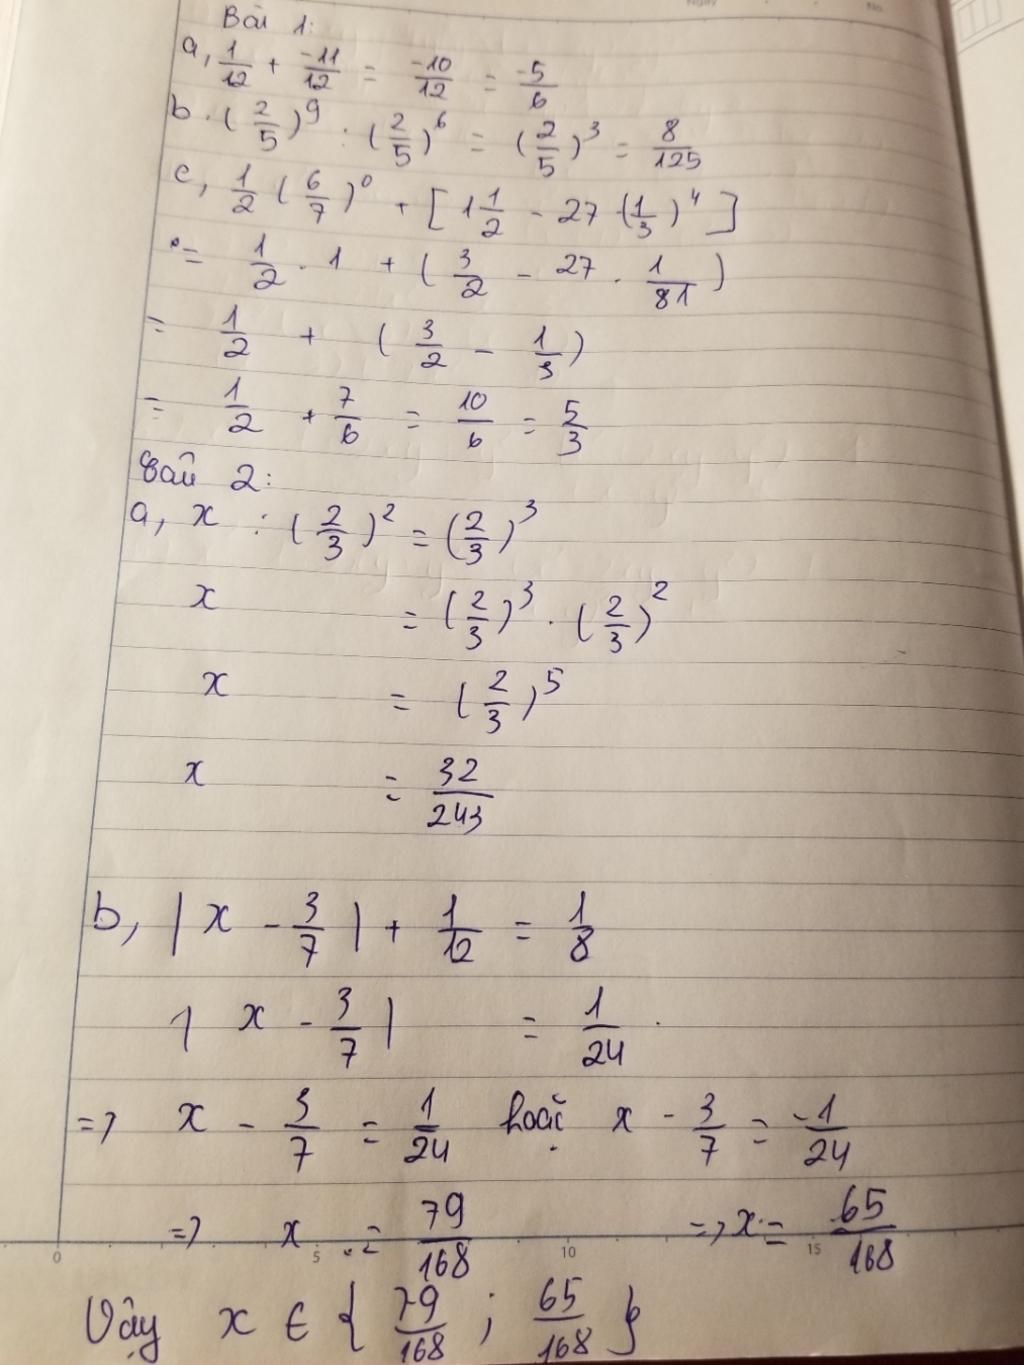 Ngày No.
Bài 1:
a, 1/12 + -11/12 = -10/12 = -5/6
b. (2/5)^9 : (2/5)^6 = (2/5)^3 = 8/125
c, 1/2 (6/7)^0 + [1 1/2 - 27 (1/3)^4]
= 1/2 . 1 + (3/2 - 27 . 1/81)
= 1/2 + (3/2 - 1/3)
= 1/2 + 7/6 = 10/6 = 5/3
Bài 2:
a, x : (2/3)^2 = (2/3)^3
x = (2/3)^3 . (2/3)^2
x = (2/3)^5
x = 32/243
b, |x - 3/7| + 1/12 = 1/8
|x - 3/7| = 1/24
=> x - 3/7 = 1/24 hoặc x - 3/7 = -1/24
=> x = 79/168 => x = 65/168
0 5 10 15
Vậy x ∈ {79/168 ; 65/168}